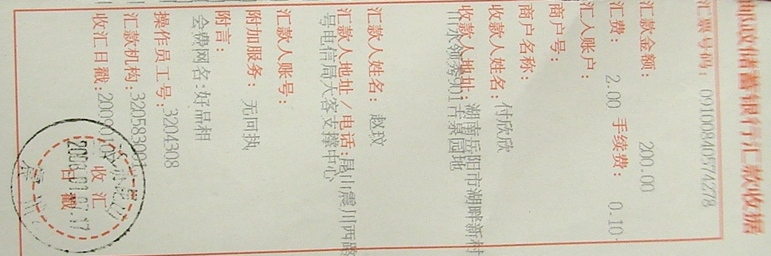 邮政储蓄银行汇款收据
汇票号码：091008405742778
汇款金额：200.00
汇费：2.00 手续费：0.10
汇入账户：
商户号：
商户名称：
收款人姓名：付欣欣
收款人地址：湖南岳阳市湖畔新村
汇款人姓名：赵玟
汇款人地址/电话：昆山震川西路
号电信局大客支撑中心
汇款人账号：
附加服务：无回执
附言：
会费网名：好品相
操作员工号：3204308
汇款机构：320583001
收汇日戳：
收汇
日戳